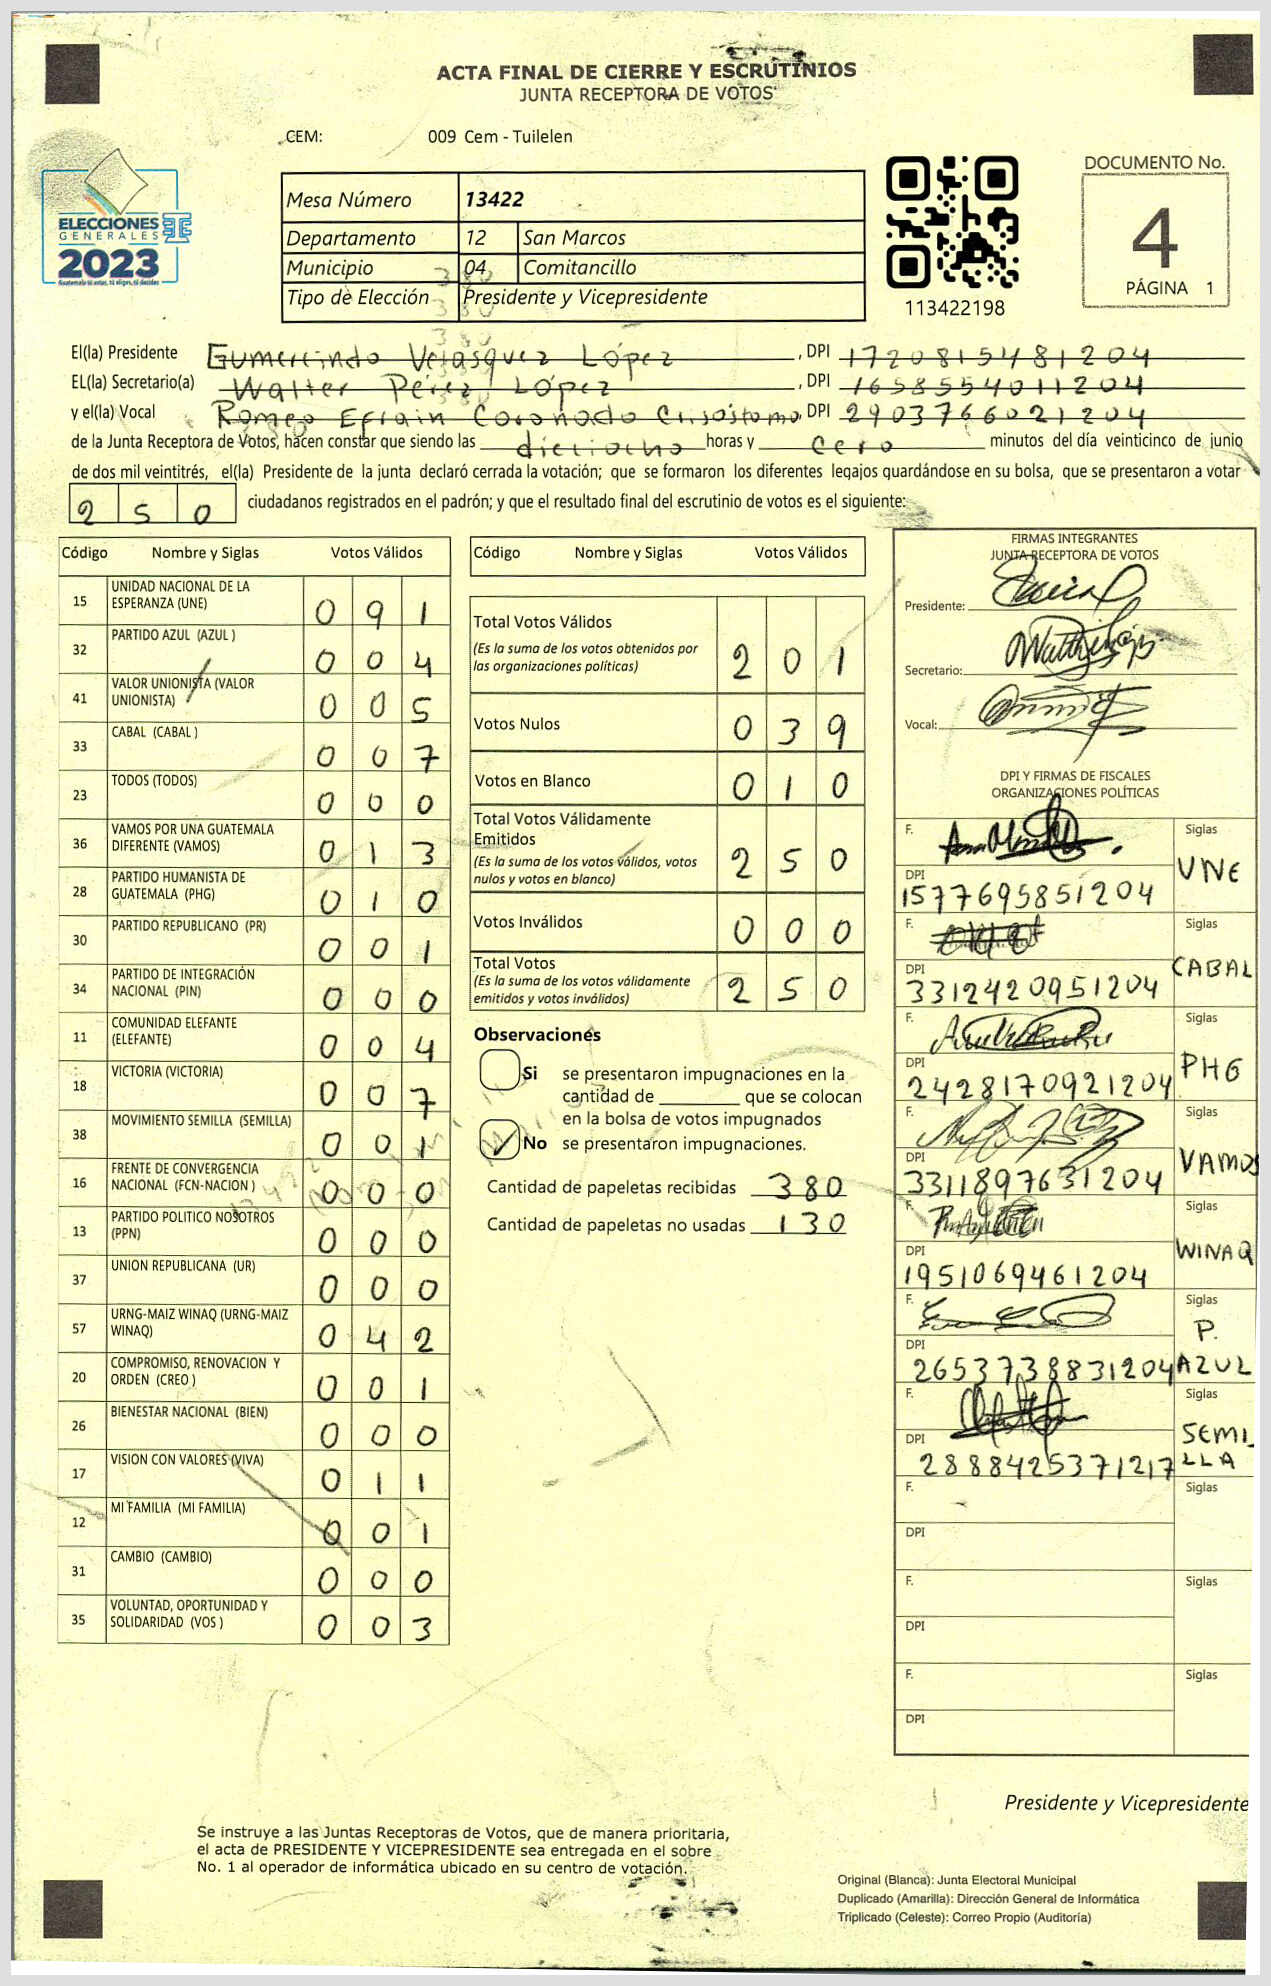 ACTA FINAL DE CIERRE Y ESCRUTINIOS
JUNTA RECEPTORA DE VOTOS
CEM: 009 Cem - Tuilelen
ELECCIONES
GENERALES
2023
Guatemala tú votas, tú eliges, tú decides
Mesa Número 13422
Departamento 12 San Marcos
Municipio 04 Comitancillo
Tipo de Elección Presidente y Vicepresidente
113422198
DOCUMENTO No.
4
PÁGINA 1
El(la) Presidente Gumercindo Velasquez López, DPI 1720815481204
EL(la) Secretario(a) Walter Pérez López, DPI 1658554011204
y el(la) Vocal Romeo Efrain Coronado Crisóstomo, DPI 2903766021204
de la Junta Receptora de Votos, hacen constar que siendo las dieciocho horas y cero minutos del día veinticinco de junio
de dos mil veintitrés, el(la) Presidente de la junta declaró cerrada la votación; que se formaron los diferentes legajos guardándose en su bolsa, que se presentaron a votar
250 ciudadanos registrados en el padrón; y que el resultado final del escrutinio de votos es el siguiente:
Código Nombre y Siglas Votos Válidos
15 UNIDAD NACIONAL DE LA ESPERANZA (UNE) 091
32 PARTIDO AZUL (AZUL ) 004
41 VALOR UNIONISTA (VALOR UNIONISTA) 005
33 CABAL (CABAL ) 007
23 TODOS (TODOS) 000
36 VAMOS POR UNA GUATEMALA DIFERENTE (VAMOS) 013
28 PARTIDO HUMANISTA DE GUATEMALA (PHG) 010
30 PARTIDO REPUBLICANO (PR) 001
34 PARTIDO DE INTEGRACIÓN NACIONAL (PIN) 000
11 COMUNIDAD ELEFANTE (ELEFANTE) 004
18 VICTORIA (VICTORIA) 007
38 MOVIMIENTO SEMILLA (SEMILLA) 001
16 FRENTE DE CONVERGENCIA NACIONAL (FCN-NACION ) 000
13 PARTIDO POLITICO NOSOTROS (PPN) 000
37 UNION REPUBLICANA (UR) 000
57 URNG-MAIZ WINAQ (URNG-MAIZ WINAQ) 042
20 COMPROMISO, RENOVACION Y ORDEN (CREO ) 001
26 BIENESTAR NACIONAL (BIEN) 000
17 VISION CON VALORES (VIVA) 011
12 MI FAMILIA (MI FAMILIA) 001
31 CAMBIO (CAMBIO) 000
35 VOLUNTAD, OPORTUNIDAD Y SOLIDARIDAD (VOS ) 003
Código Nombre y Siglas Votos Válidos
Total Votos Válidos 201
(Es la suma de los votos obtenidos por
las organizaciones políticas)
Votos Nulos 039
Votos en Blanco 010
Total Votos Válidamente
Emitidos 250
(Es la suma de los votos válidos, votos
nulos y votos en blanco)
Votos Inválidos 000
Total Votos 250
(Es la suma de los votos válidamente
emitidos y votos inválidos)
Observaciones
Si se presentaron impugnaciones en la
cantidad de ________ que se colocan
en la bolsa de votos impugnados
No se presentaron impugnaciones.
Cantidad de papeletas recibidas 380
Cantidad de papeletas no usadas 130
FIRMAS INTEGRANTES
JUNTA RECEPTORA DE VOTOS
Presidente:
Secretario:
Vocal:
DPI Y FIRMAS DE FISCALES
ORGANIZACIONES POLÍTICAS
F. Siglas UNE
DPI 1577695851204
F. Siglas CABAL
DPI 3312420951204
F. Siglas PHG
DPI 2428170921204
F. Siglas VAMOS
DPI 3311897631204
F. Siglas WINAQ
DPI 1951069461204
F. Siglas P. AZUL
DPI 2653738831204
F. Siglas SEMILLA
DPI 2888425371217
F. Siglas
DPI
F. Siglas
DPI
F. Siglas
DPI
Presidente y Vicepresidente
Se instruye a las Juntas Receptoras de Votos, que de manera prioritaria,
el acta de PRESIDENTE Y VICEPRESIDENTE sea entregada en el sobre
No. 1 al operador de informática ubicado en su centro de votación.
Original (Blanca): Junta Electoral Municipal
Duplicado (Amarilla): Dirección General de Informática
Triplicado (Celeste): Correo Propio (Auditoría)